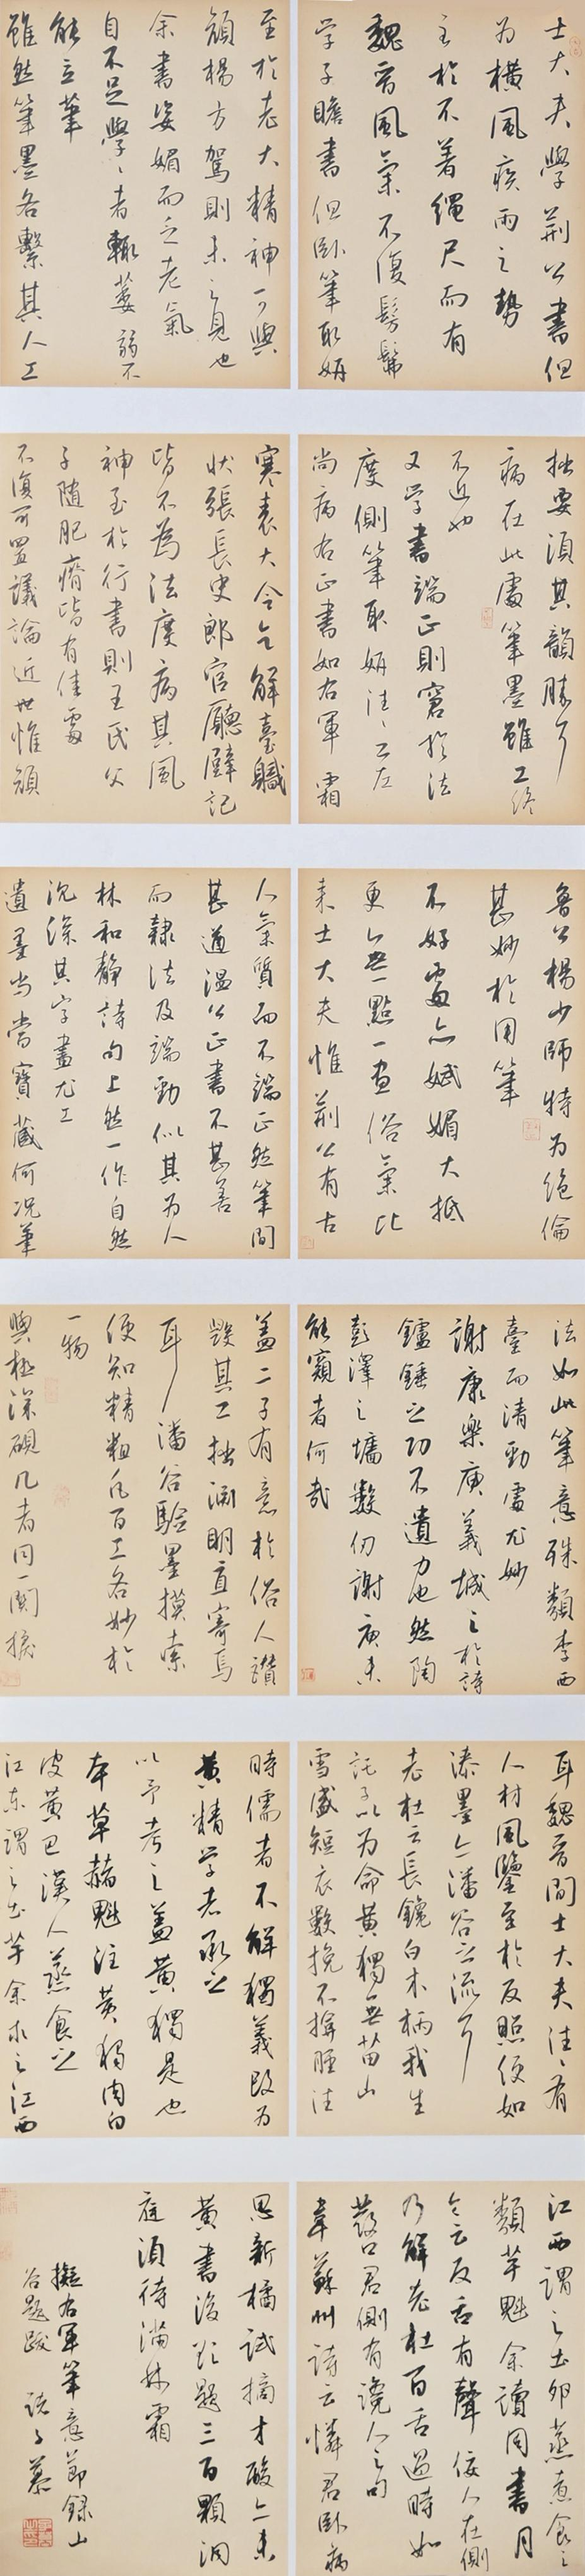 士大夫學荆公書但
为橫風疾雨之勢
至於不著繩尺而有
魏晉風氣不復髣髴
学子瞻書但卧筆取妍
至於老大精神可與
顔楊方駕則未之見也
余書姿媚而乏老氣
自不足學學者輒萎弱不
能立筆
雖然筆墨各繫其人工
拙要須其韻勝耳
病在此處筆墨雖工終
不近也
又学書端正則窘於法
度側筆取妍往往工左
尚病右正書如右軍霜
寒表大令乞解臺職
狀張長史郎官廳壁記
皆不為法度病其風
神至於行書則王氏父
子隨肥瘠皆有佳處
不復可置議論近世惟顔
魯公楊少師特为绝倫
甚妙於用筆
不好處亦嫵媚大抵
更無一點一画俗氣比
来士大夫惟荆公有古
人氣質而不端正然筆間
甚遒温公正書不甚善
而隸法及端勁似其为人
林和靜詩句上然一作自然
沉深其字畫尤工
遺墨尚當寶藏何况筆
法如此筆意殊類李西
臺而清勁處尤妙
謝康樂庾義城之於詩
鑪錘之功不遺力也然陶
彭澤之墻數仞謝庾未
能窺者何哉
盖二子有意於俗人讚
毀其工拙渊明直寄焉
耳潘谷驗墨摸索
便知精粗凡百工各妙於
一物
與極深研几者同一関捩
耳魏晋間士大夫往往有
人材風鑒至於反照便如
漆墨亦潘谷之流耳
老杜云長鑱白木柄我生
託子以为命黄獨無苗山
雪盛短衣數挽不揜脛往
時儒者不解獨義改为
黄精学者承之
以予考之盖黄獨是也
本草赭魁注黄独肉白
皮黄巴漢人蒸食之
江東謂之土芋余求之江西
江西謂之土卵蒸煮食之
類芋魁余讀周書月
令云反舌有聲佞人在側
乃解老杜百舌過時如
發口君側有讒人之句
韋蘇州詩云憐君卧病
思新橘試摘才酸亦未
黄書後欲題三百顆洞
庭須待滿林霜
擬右軍筆意節録山
谷題跋